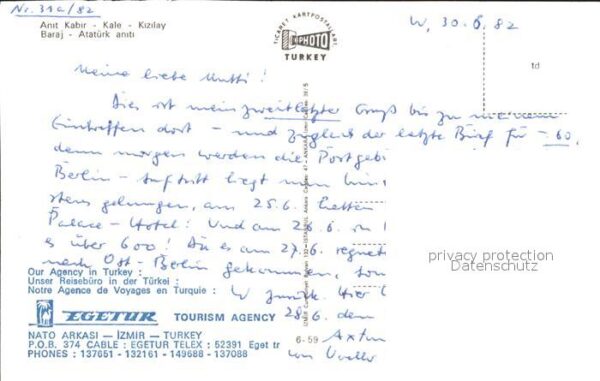 Nr. 31a/82
W, 30.6.82
Anıt Kabir - Kale - Kızılay
Baraj - Atatürk anıti
TİCARET KARTPOSTALLARI
PHOTO
TURKEY
td
Meine liebe Mutti!
Dies ist mein zweitletzter Gruß bis zu meinem
Eintreffen dort - und zugleich der letzte Brief für -60,
denn morgen werden die Postgebü
Berlin - Auftritt liegt nun hin
stens gelungen, am 25.6. hatten
Palace-Hotel! Und am 26.6.
es über 600! Da es am 27.6. regnete
nach Ost-Berlin gekommen,
W zurück. Hier
28.6. dem
von
privacy protection
Datenschutz
Our Agency in Turkey :
Unser Reisebüro in der Türkei :
Notre Agence de Voyages en Turquie :
EGETUR TOURISM AGENCY
NATO ARKASI — İZMİR — TURKEY
P.O.B. 374 CABLE : EGETUR TELEX : 52391 Eget tr
PHONES : 137651 - 132161 - 149688 - 137088
6-59